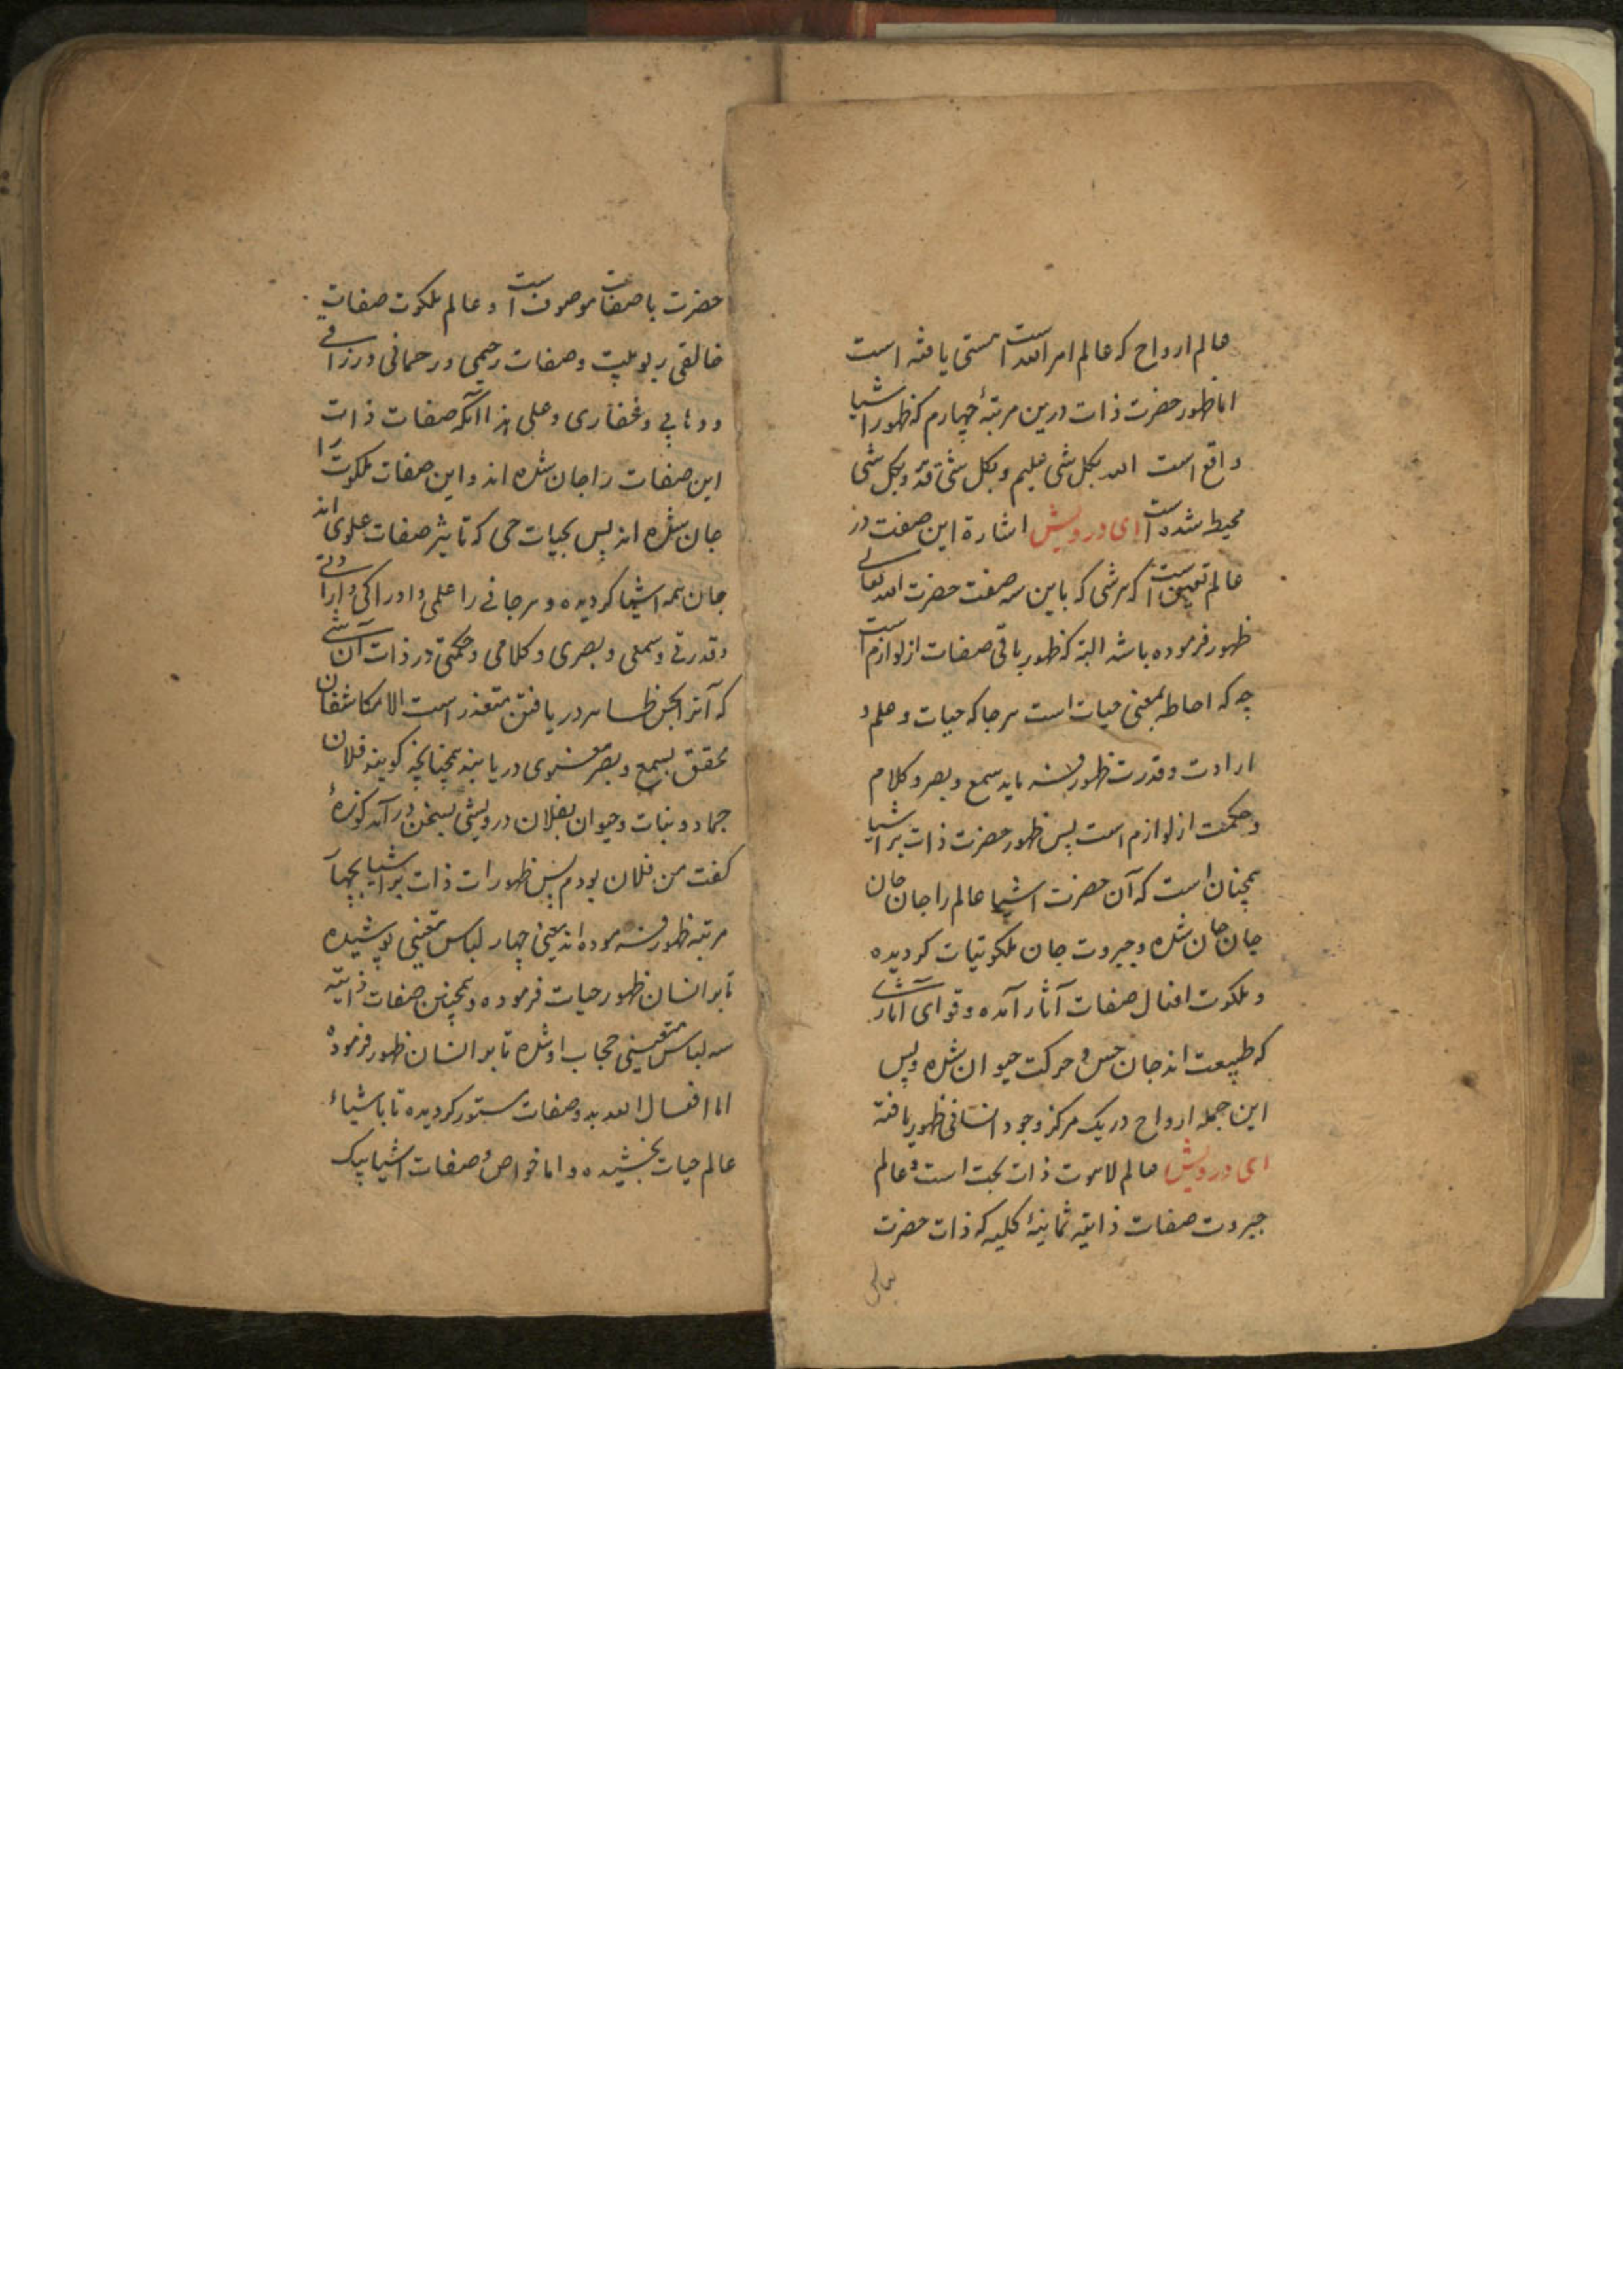 عالم ارواح که عالم امر الله است هستی یافته است
اما ظهور حضرت ذات درین مرتبهٔ چهارم که ظهور اشیا
واقع است الله بکل شی علیم و بکل شی قدیر و بکل شی
محیط شده است ای درویش اشارة این صفت در
عالم تعین است که هر شی که باین سه صفت حضرت الله تعالی
ظهور فرموده باشد البته که ظهور باقی صفات از لوازم است
چه که احاطه بمعنی حیات است هر جا که حیات و علم و
ارادت و قدرت ظهور فرماید سمع و بصر و کلام
و حکمت از لوازم است پس ظهور حضرت ذات بر اشیا
همچنان است که آن حضرت اشیا عالم را جان جان
جان جان شده و جبروت جان ملکوتیات کردیده
و ملکوت افعال صفات آثار آمده و قوای آثاری
که طبیعت اند جان حس و حرکت حیوان شده و پس
این جمله ارواح در یک مرکز وجود انسانی ظهور یافته
ای درویش عالم لاهوت ذات بحت است و عالم
جبروت صفات ذاتیه ثمانیهٔ کلیه که ذات حضرت
حضرت با صفات موصوف است و عالم ملکوت صفات
خالقی ربوبیت و صفات رحیمی و رحمانی و رزاقی
و وهابی و غفاری و علی هذا آنکه صفات ذات
این صفات را جان شده اند و این صفات ملکوت را
جان شده اند پس بحیات حی که تاثیر صفات علوی اند
جان همه اشیا کردیده و هر جانی را علمی و ادراکی و ارادتی
و قدرتی و سمعی و بصری و کلامی و حکمتی در ذات آن شی
که آنرا بحس ظاهر دریافتن متعذر است الا مکاشفان
محقق بسمع و بصر معنوی دریابند همچنانچه کویند فلان
جماد و نبات و حیوان بفلان درویشی بسخن در آمد کوزهٔ
کفت من فلان بودم پس ظهورات ذات بر اشیا بچهار
مرتبه ظهور فرموده اند یعنی چهار لباس تعینی پوشیده
تا بر انسان ظهور حیات فرموده و همچنین صفات ذاتیه
سه لباس تعینی حجاب او شده تا بر انسان ظهور فرموده
اما افعال الله بدو صفات مستور کردیده تا باشیاء
عالم حیات بخشیده و اما خواص و صفات اشیا بیک